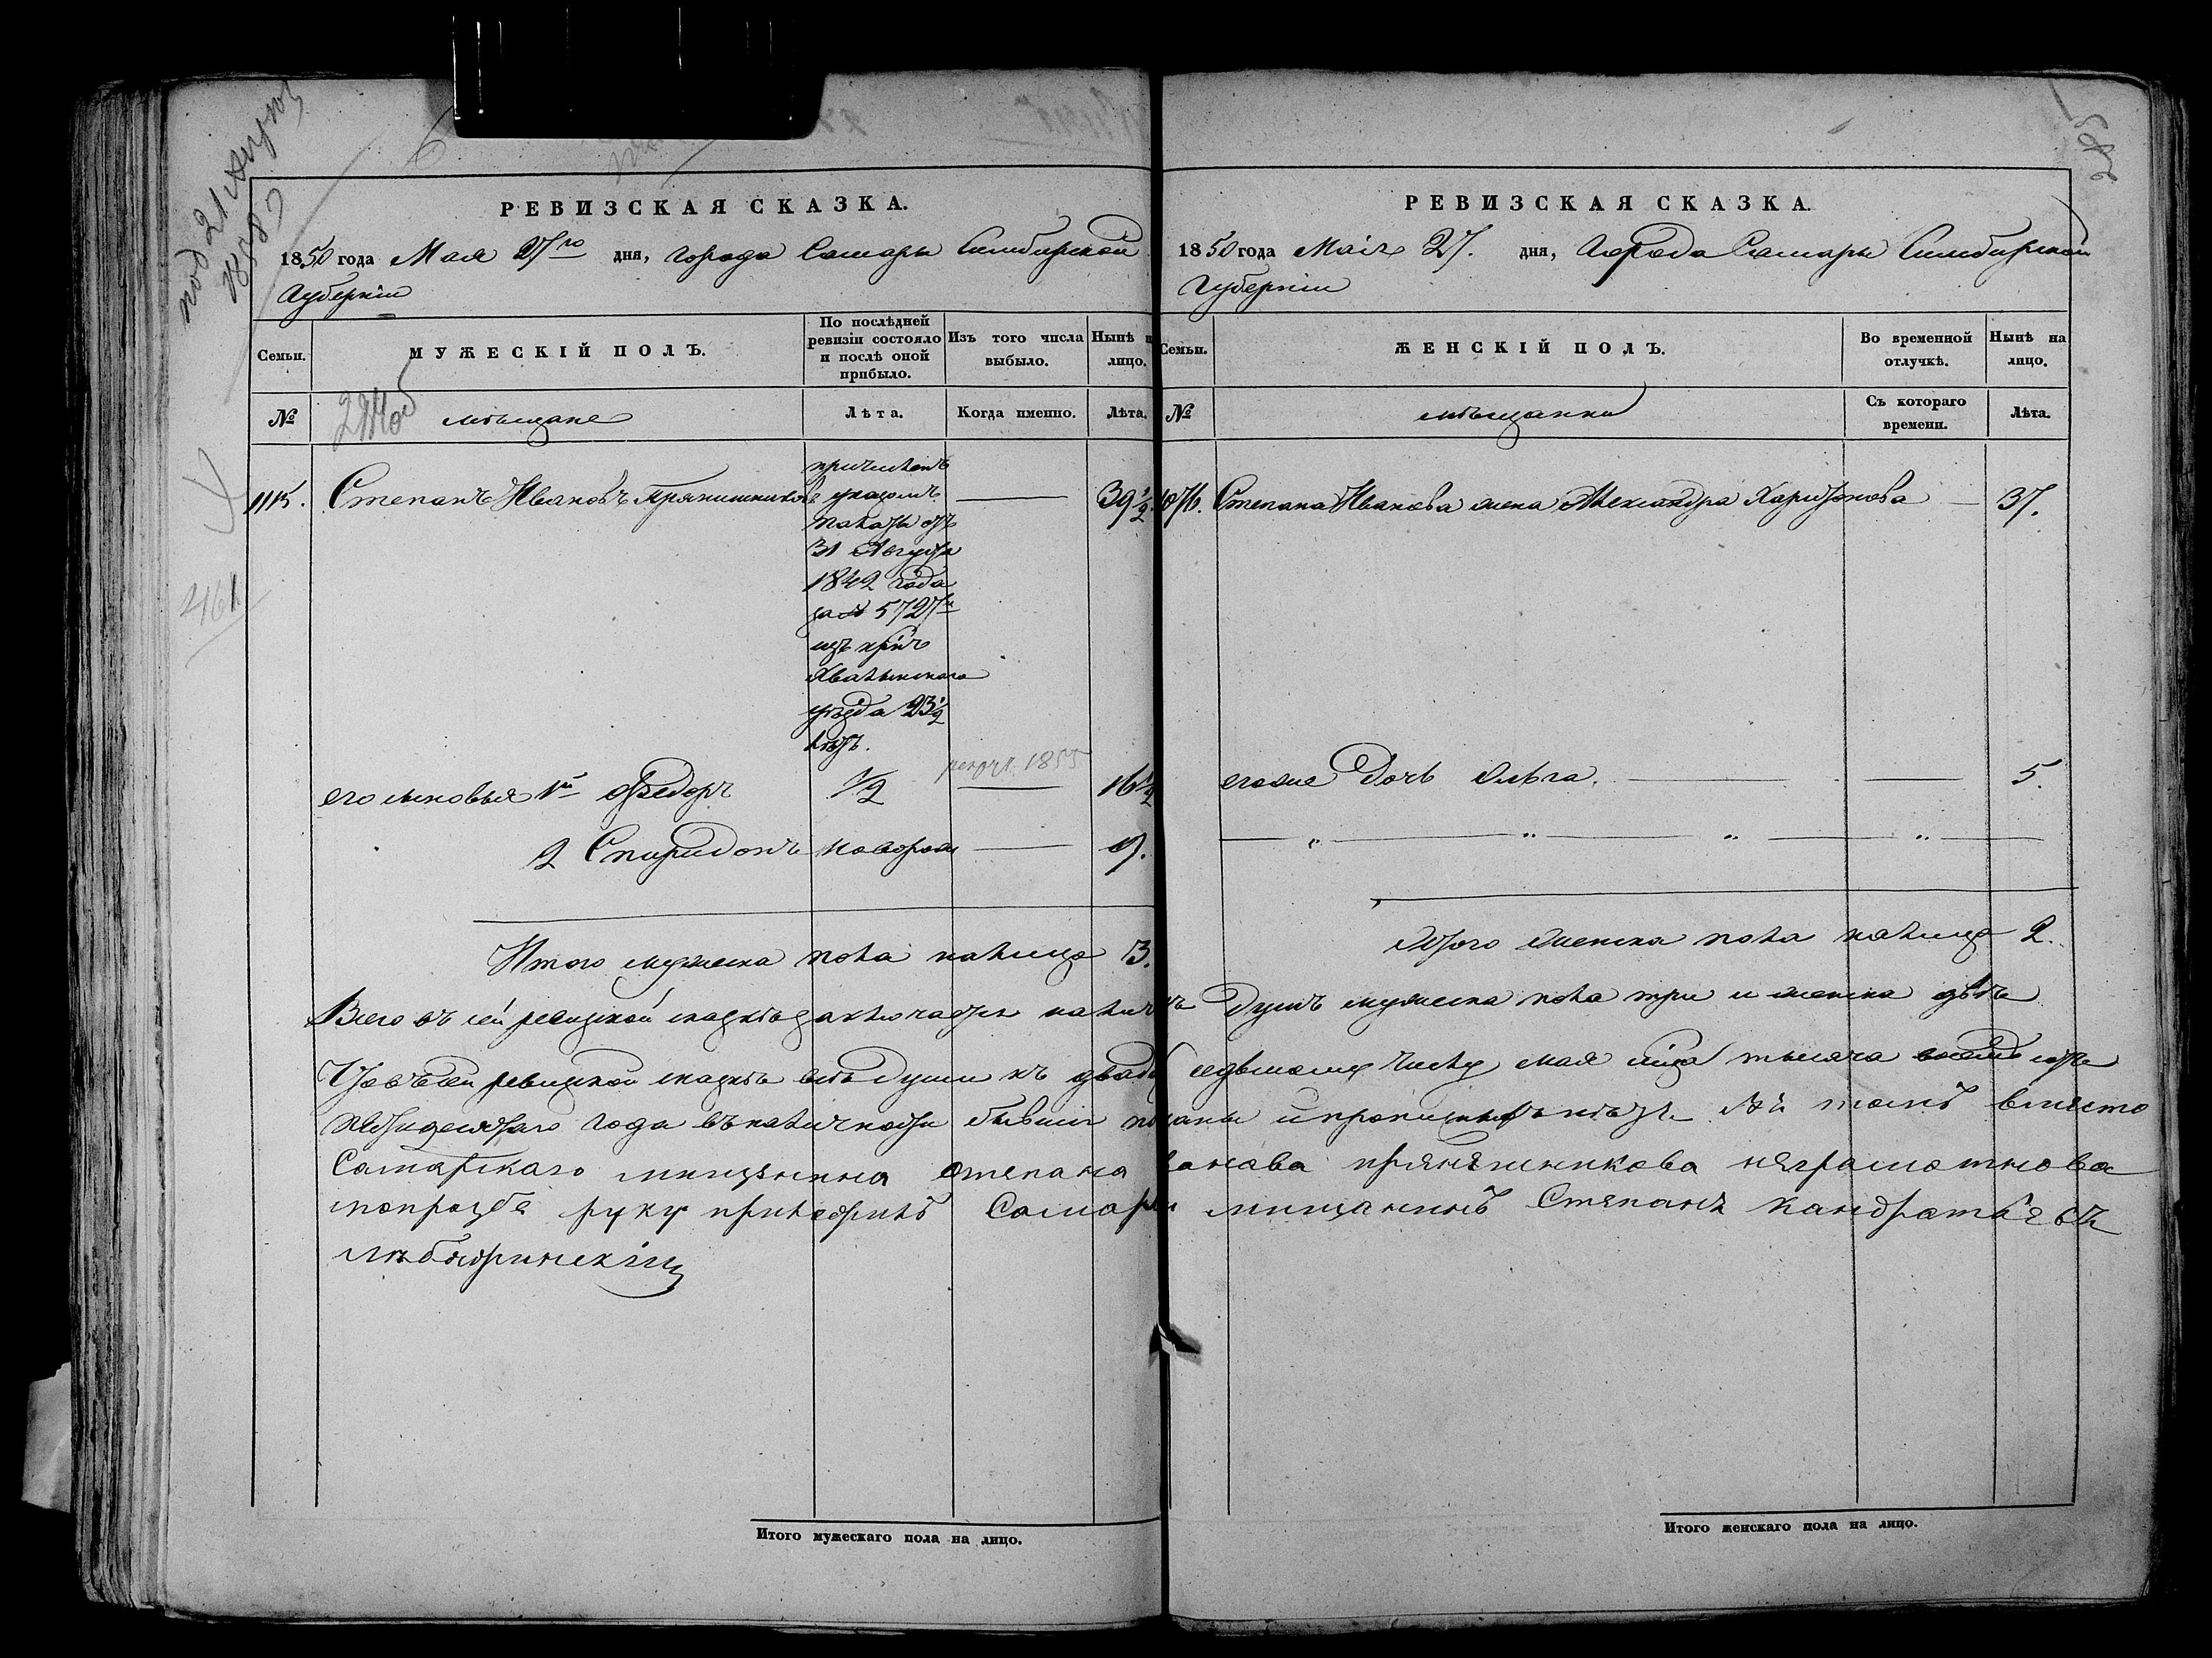 под 21 Август
1858
6
РЕВИЗСКАЯ СКАЗКА.
1850 года Мая 27го дня, города Самары Симбирской
Губернiи
Семьи.
МУЖЕСКІЙ ПОЛЪ.
По послѣдней
ревизіи состояло
и послѣ оной
прибыло.
Изъ того числа
выбыло.
Нынѣ н
лицо.
№
мѣщане
Лѣта.
Когда именно.
Лѣта.
1115.
Степанъ Ивановъ Прянишниковъ
причисленъ
указомъ
палаты отъ
31 Августа
1842 года
за № 5727м
изъ
Хвалынскаго
уѣзда 23½
лѣтъ.
39½
461
его сыновья 1й Федоръ
½
рекрут. 1855
16½
2 Спиридонъ
новорож
9.
Итого мужеска пола налицо 3.
285
РЕВИЗСКАЯ СКАЗКА.
1850 года Маiя 27. дня, Города Самары Симбирской
Губернiи
Семьи.
ЖЕНСКІЙ ПОЛЪ.
Во временной
отлучкѣ.
Нынѣ на
лицо.
№
мѣщанки
Съ котораго
времени.
Лѣта.
1076. Степана Иванова жена Александра Харитонова — 37.
егоже Дочь Ольга. — 5.
Итого женска пола налицо 2.
Всего въ сей ревизской сказкѣ заключается налич нъ Душъ мужеска пола три и женска двѣ
ревизской сказкѣ всѣ души къ двадц седьмому числу мая мца тысяча восемь сотъ
пятидесятаго года въ наличности бывши показаны и прописныхъ нѣтъ. въ томъ вместо
Самарскаго мищанина степана Иванова пряняшникова няграмотнова
попрозбе руку приложилъ Самарск мищанинъ Стяпанъ Кандратьевъ